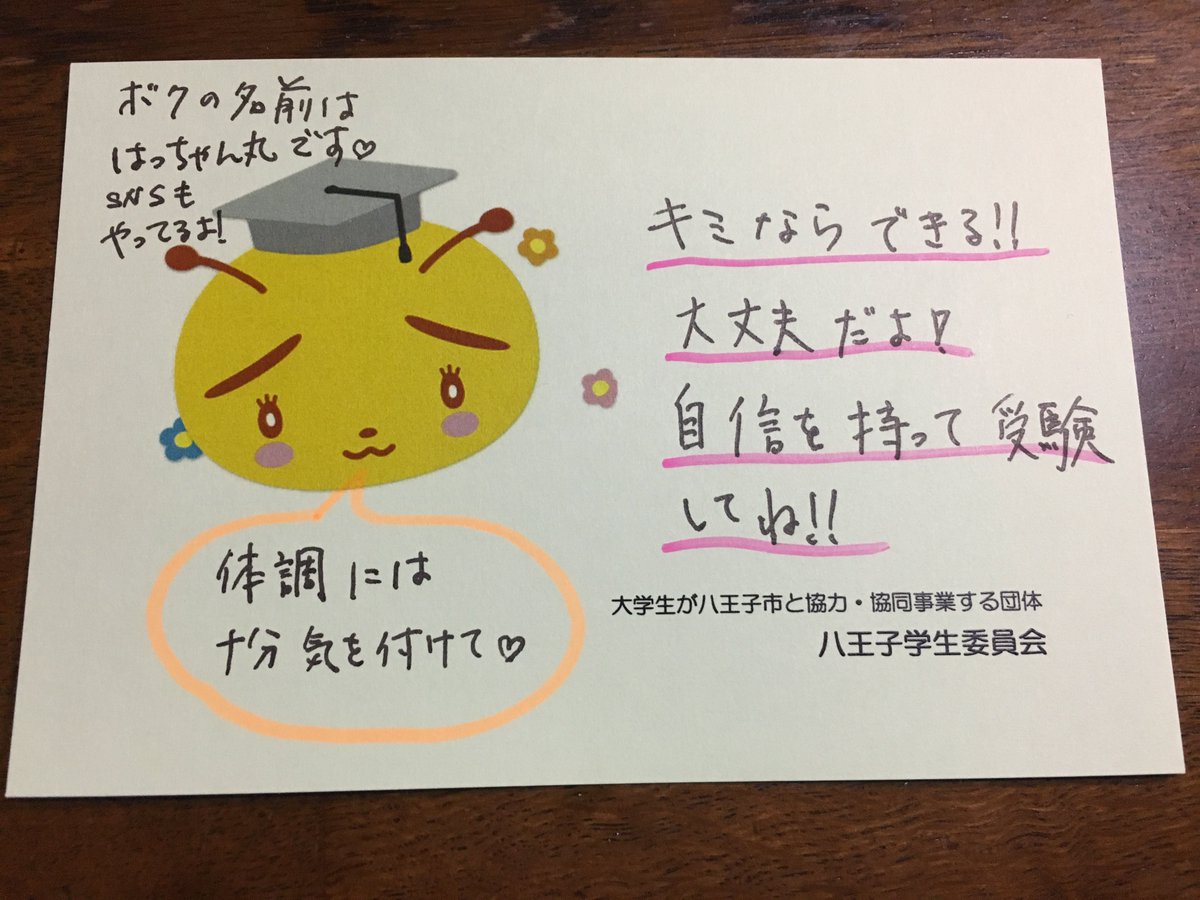 ボクの名前は
はっちゃん丸です♡
SNSも
やってるよ!
キミならできる!!
大丈夫だよ!
自信を持って受験
してね!!
体調には
十分気を付けて♡
大学生が八王子市と協力・協同事業する団体
八王子学生委員会